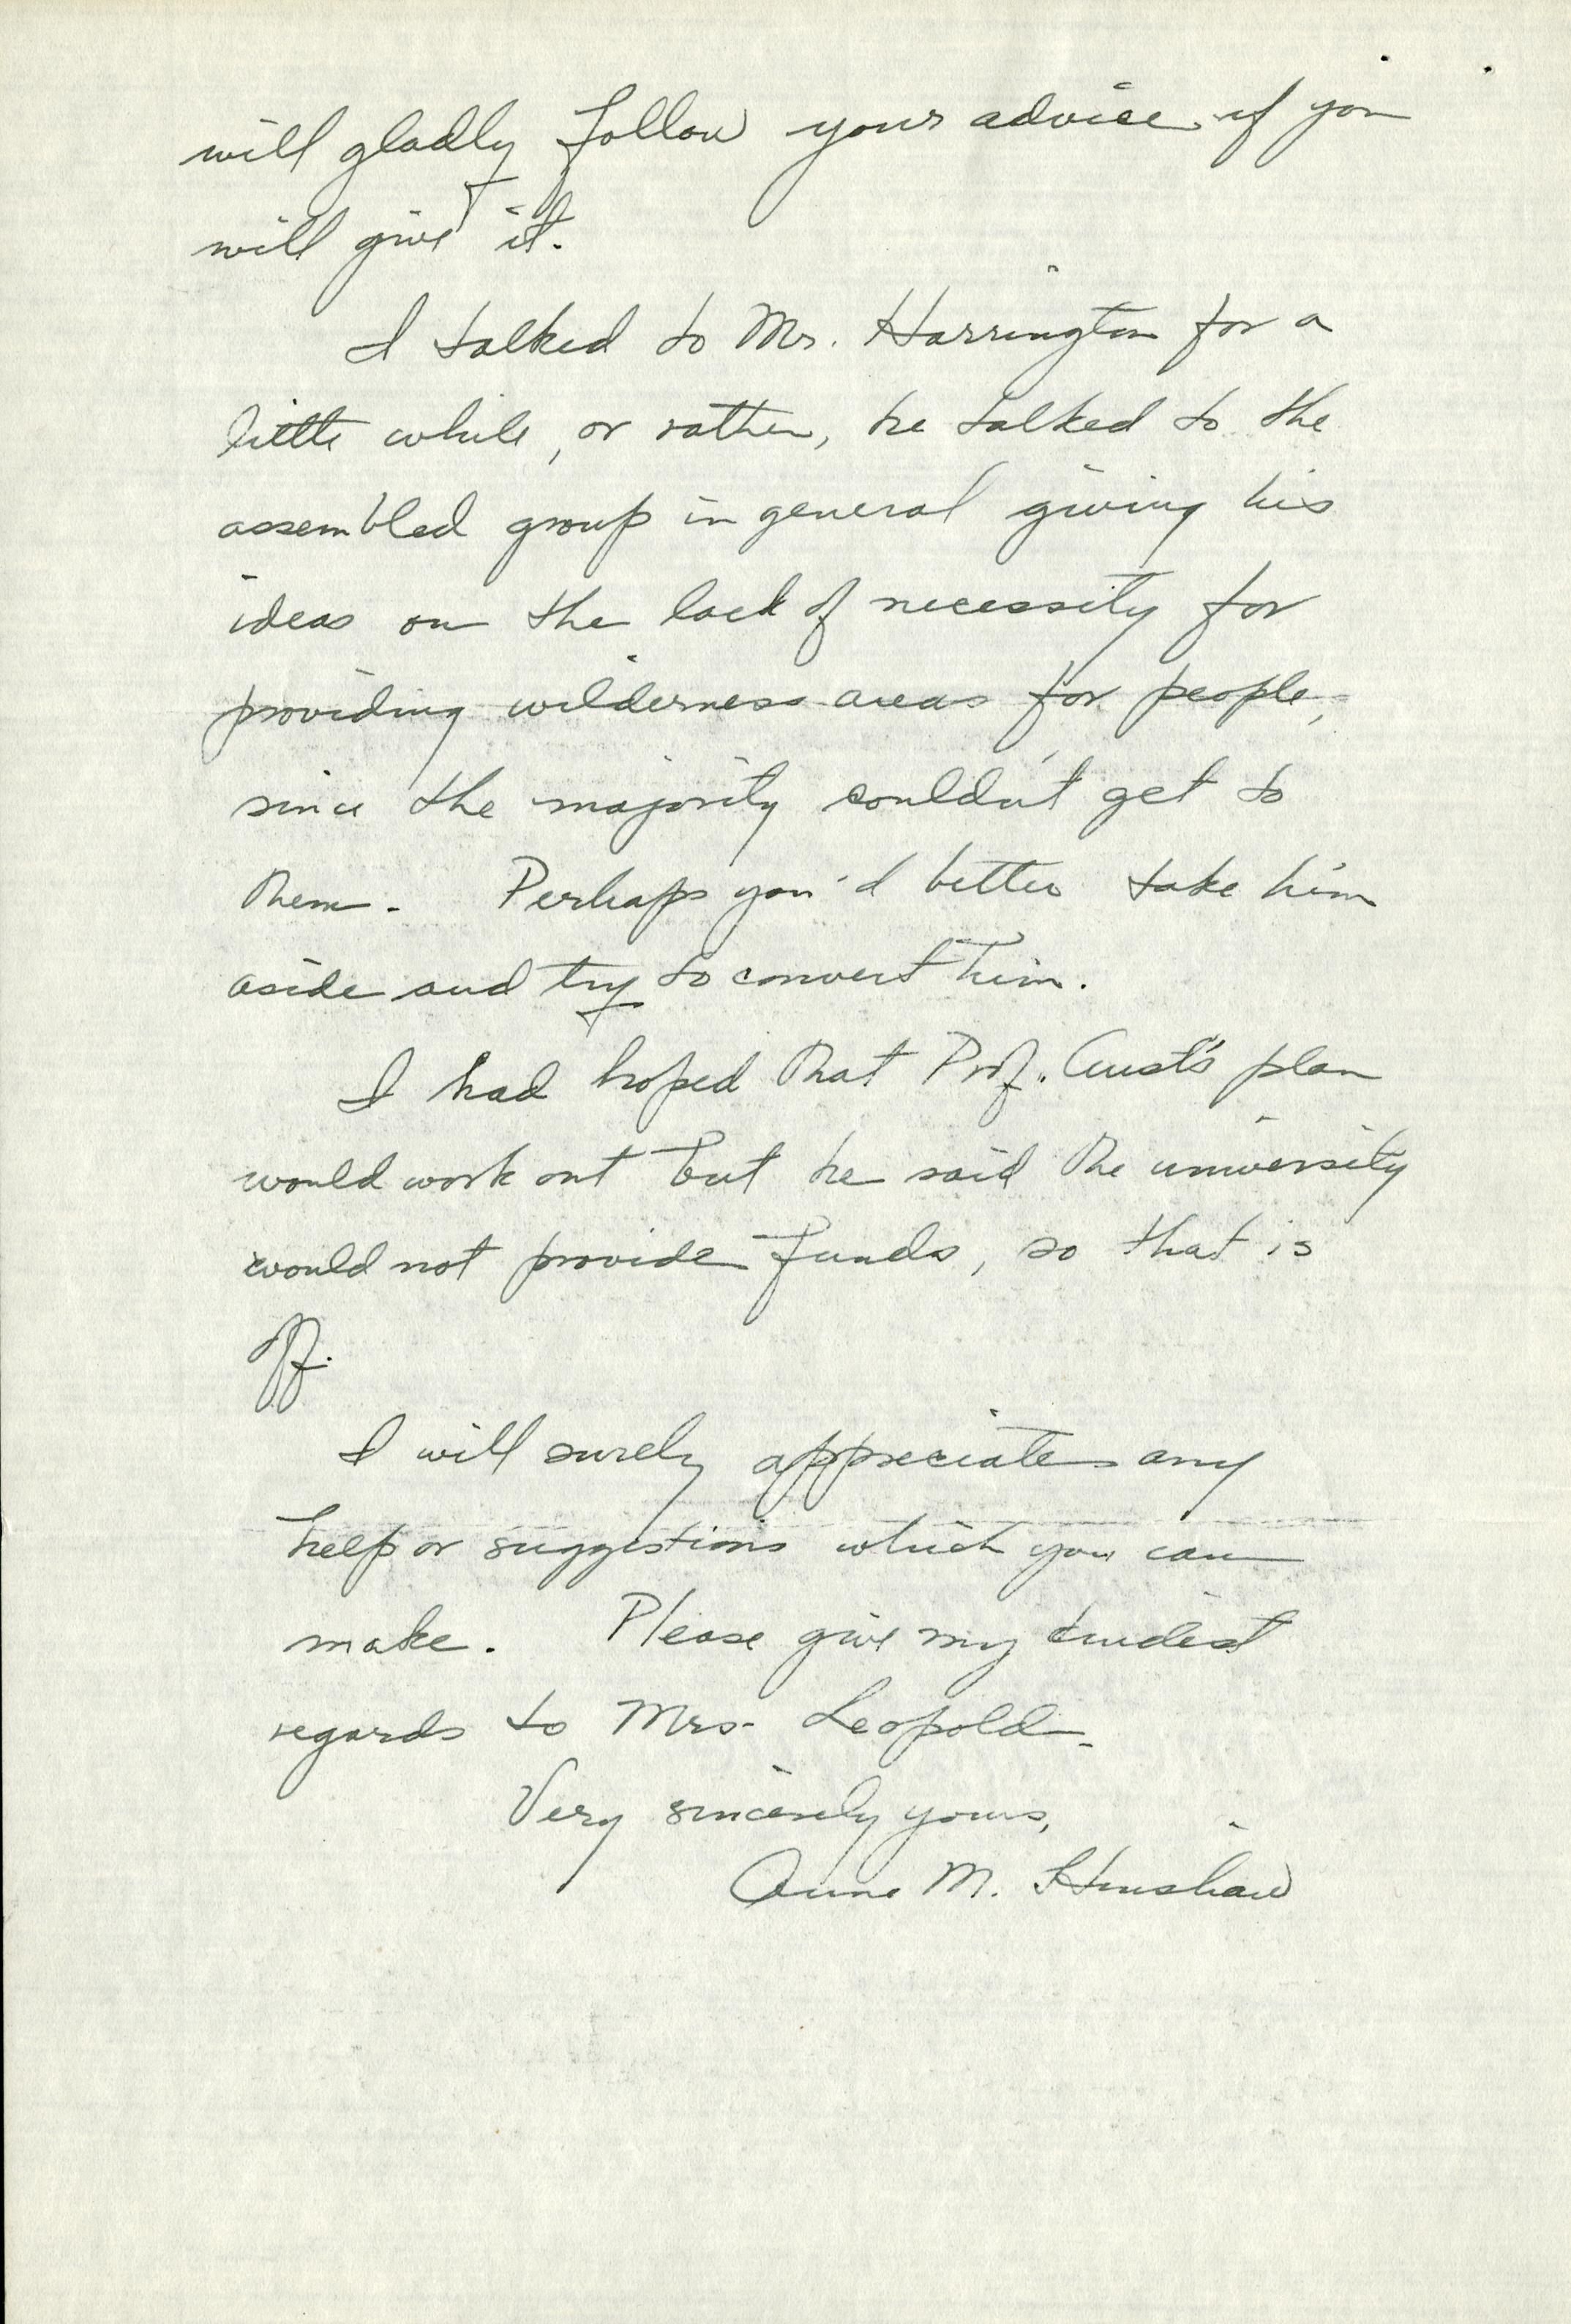 will gladly follow your advice if you
will give it.
I talked to Mr. Harrington for a
little while, or rather, he talked to the
assembled group in general giving his
ideas on the lack of necessity for
providing wilderness areas for people,
since the majority couldn't get to
them. Perhaps you'd better take him
aside and try to convert him.
I had hoped that Prof. Aust's plan
would work out but he said the university
would not provide funds, so that is
off.
I will surely appreciate any
help or suggestions which you can
make. Please give my kindest
regards to Mrs. Leopold.
Very sincerely yours,
Anne M. Henshaw